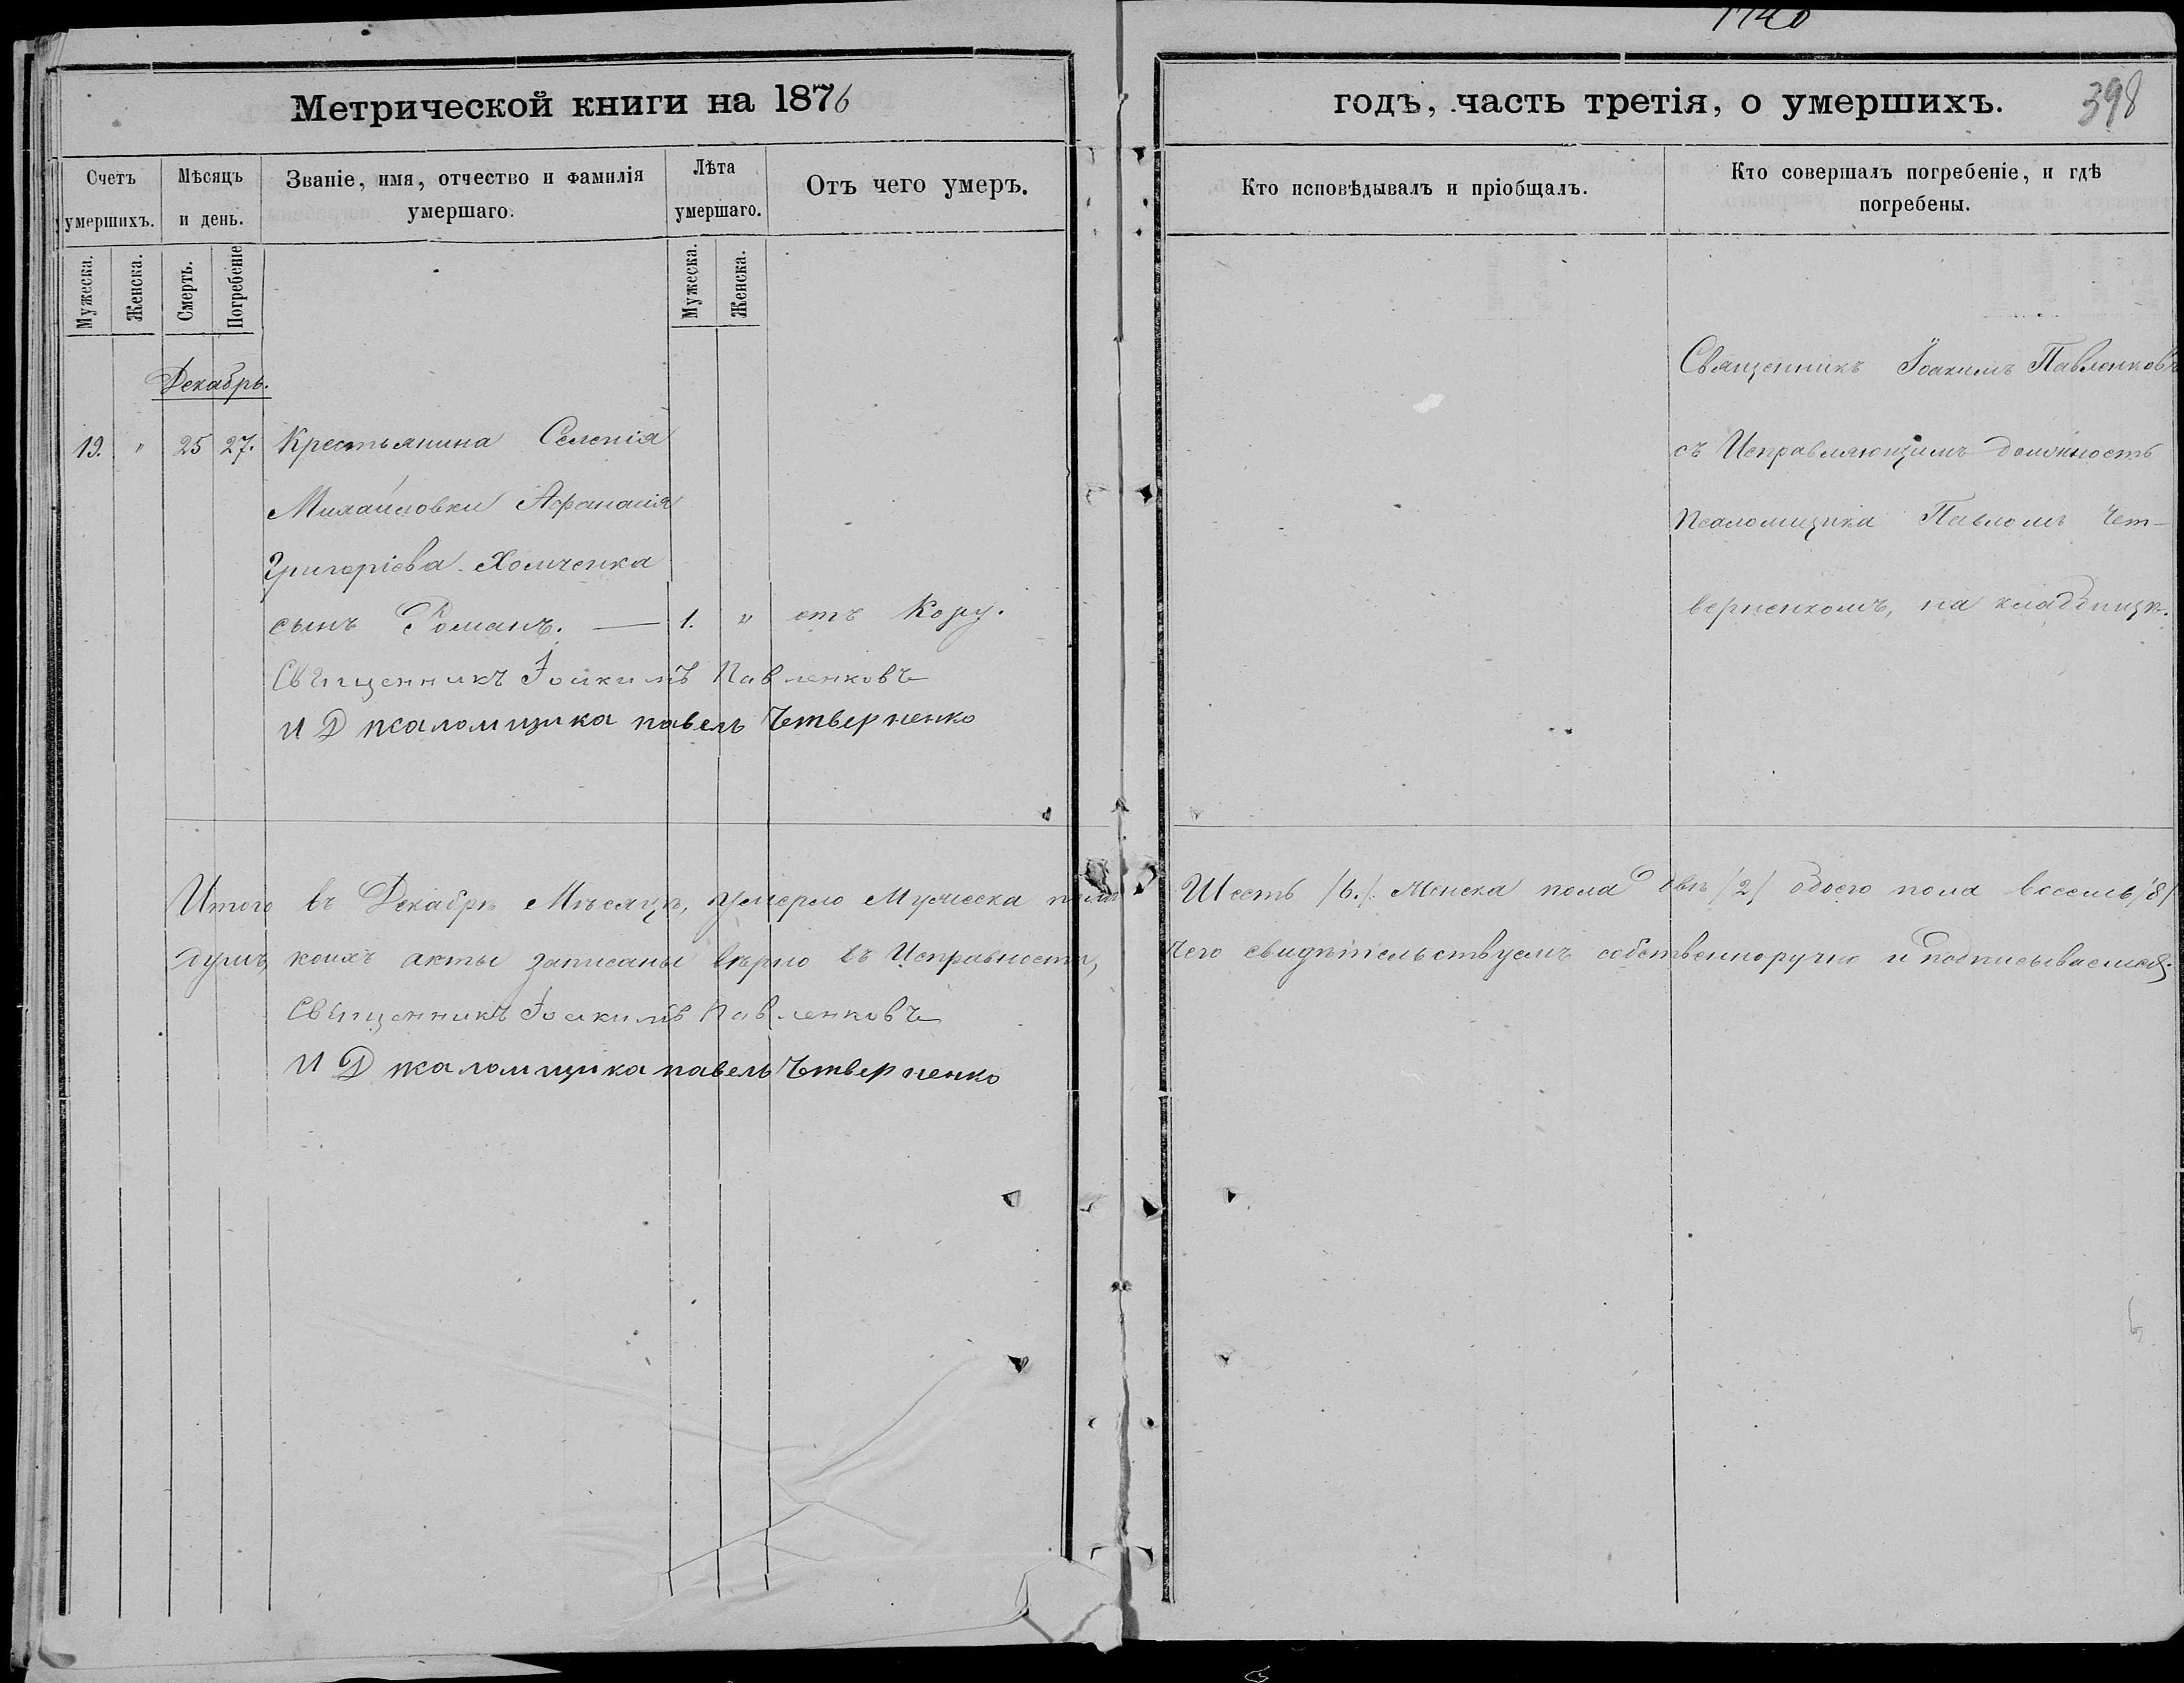 1740
Метрической книги на 1876
годъ, часть третія, о умершихъ.
398
Счетъ умершихъ.
Мѣсяцъ и день.
Званіе, имя, отчество и фамилія умершаго.
Лѣта умершаго.
Отъ чего умеръ.
Кто исповѣдывалъ и пріобщалъ.
Кто совершалъ погребеніе, и гдѣ погребены.
Мужеска.
Женска.
Смерть.
Погребеніе
Мужеска.
Женска.
Декабрь.
19. " 25 27. Крестьянина Селенія
Михайловки Афанасія
Григоріева Хомченка
сынъ Романъ. — 1. " отъ Кору.
Священникъ Іоакимъ Павленковъ
И Д псаломщика павелъ Четверненко
Священникъ Іоакимъ Павленковъ
съ Исправляющимъ должность
Псаломщика Павломъ Чет-
верненкомъ, на кладбищѣ.
Итого въ Декабрѣ Мѣсяцѣ, умерло Мужеска пола Шесть /6./ Женска пола двѣ /2/ обоего пола восемь /8/
душъ, коихъ акты записаны вѣрно въ Исправности, чего свидѣтельствуемъ собственноручно и подписываемся.
Священникъ Іоакимъ Павленковъ
И Д псаломщика павелъ Четверненко